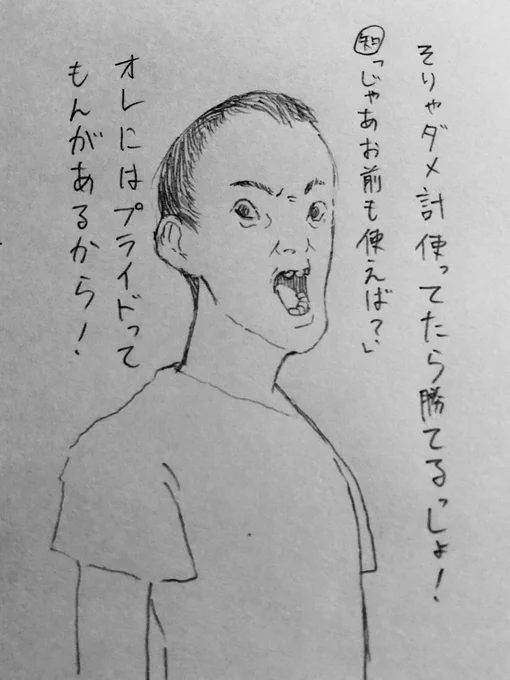 そりゃダメ計使ってたら勝てるっしょ!
知「じゃあお前も使えば?」
オレにはプライドって
もんがあるから!